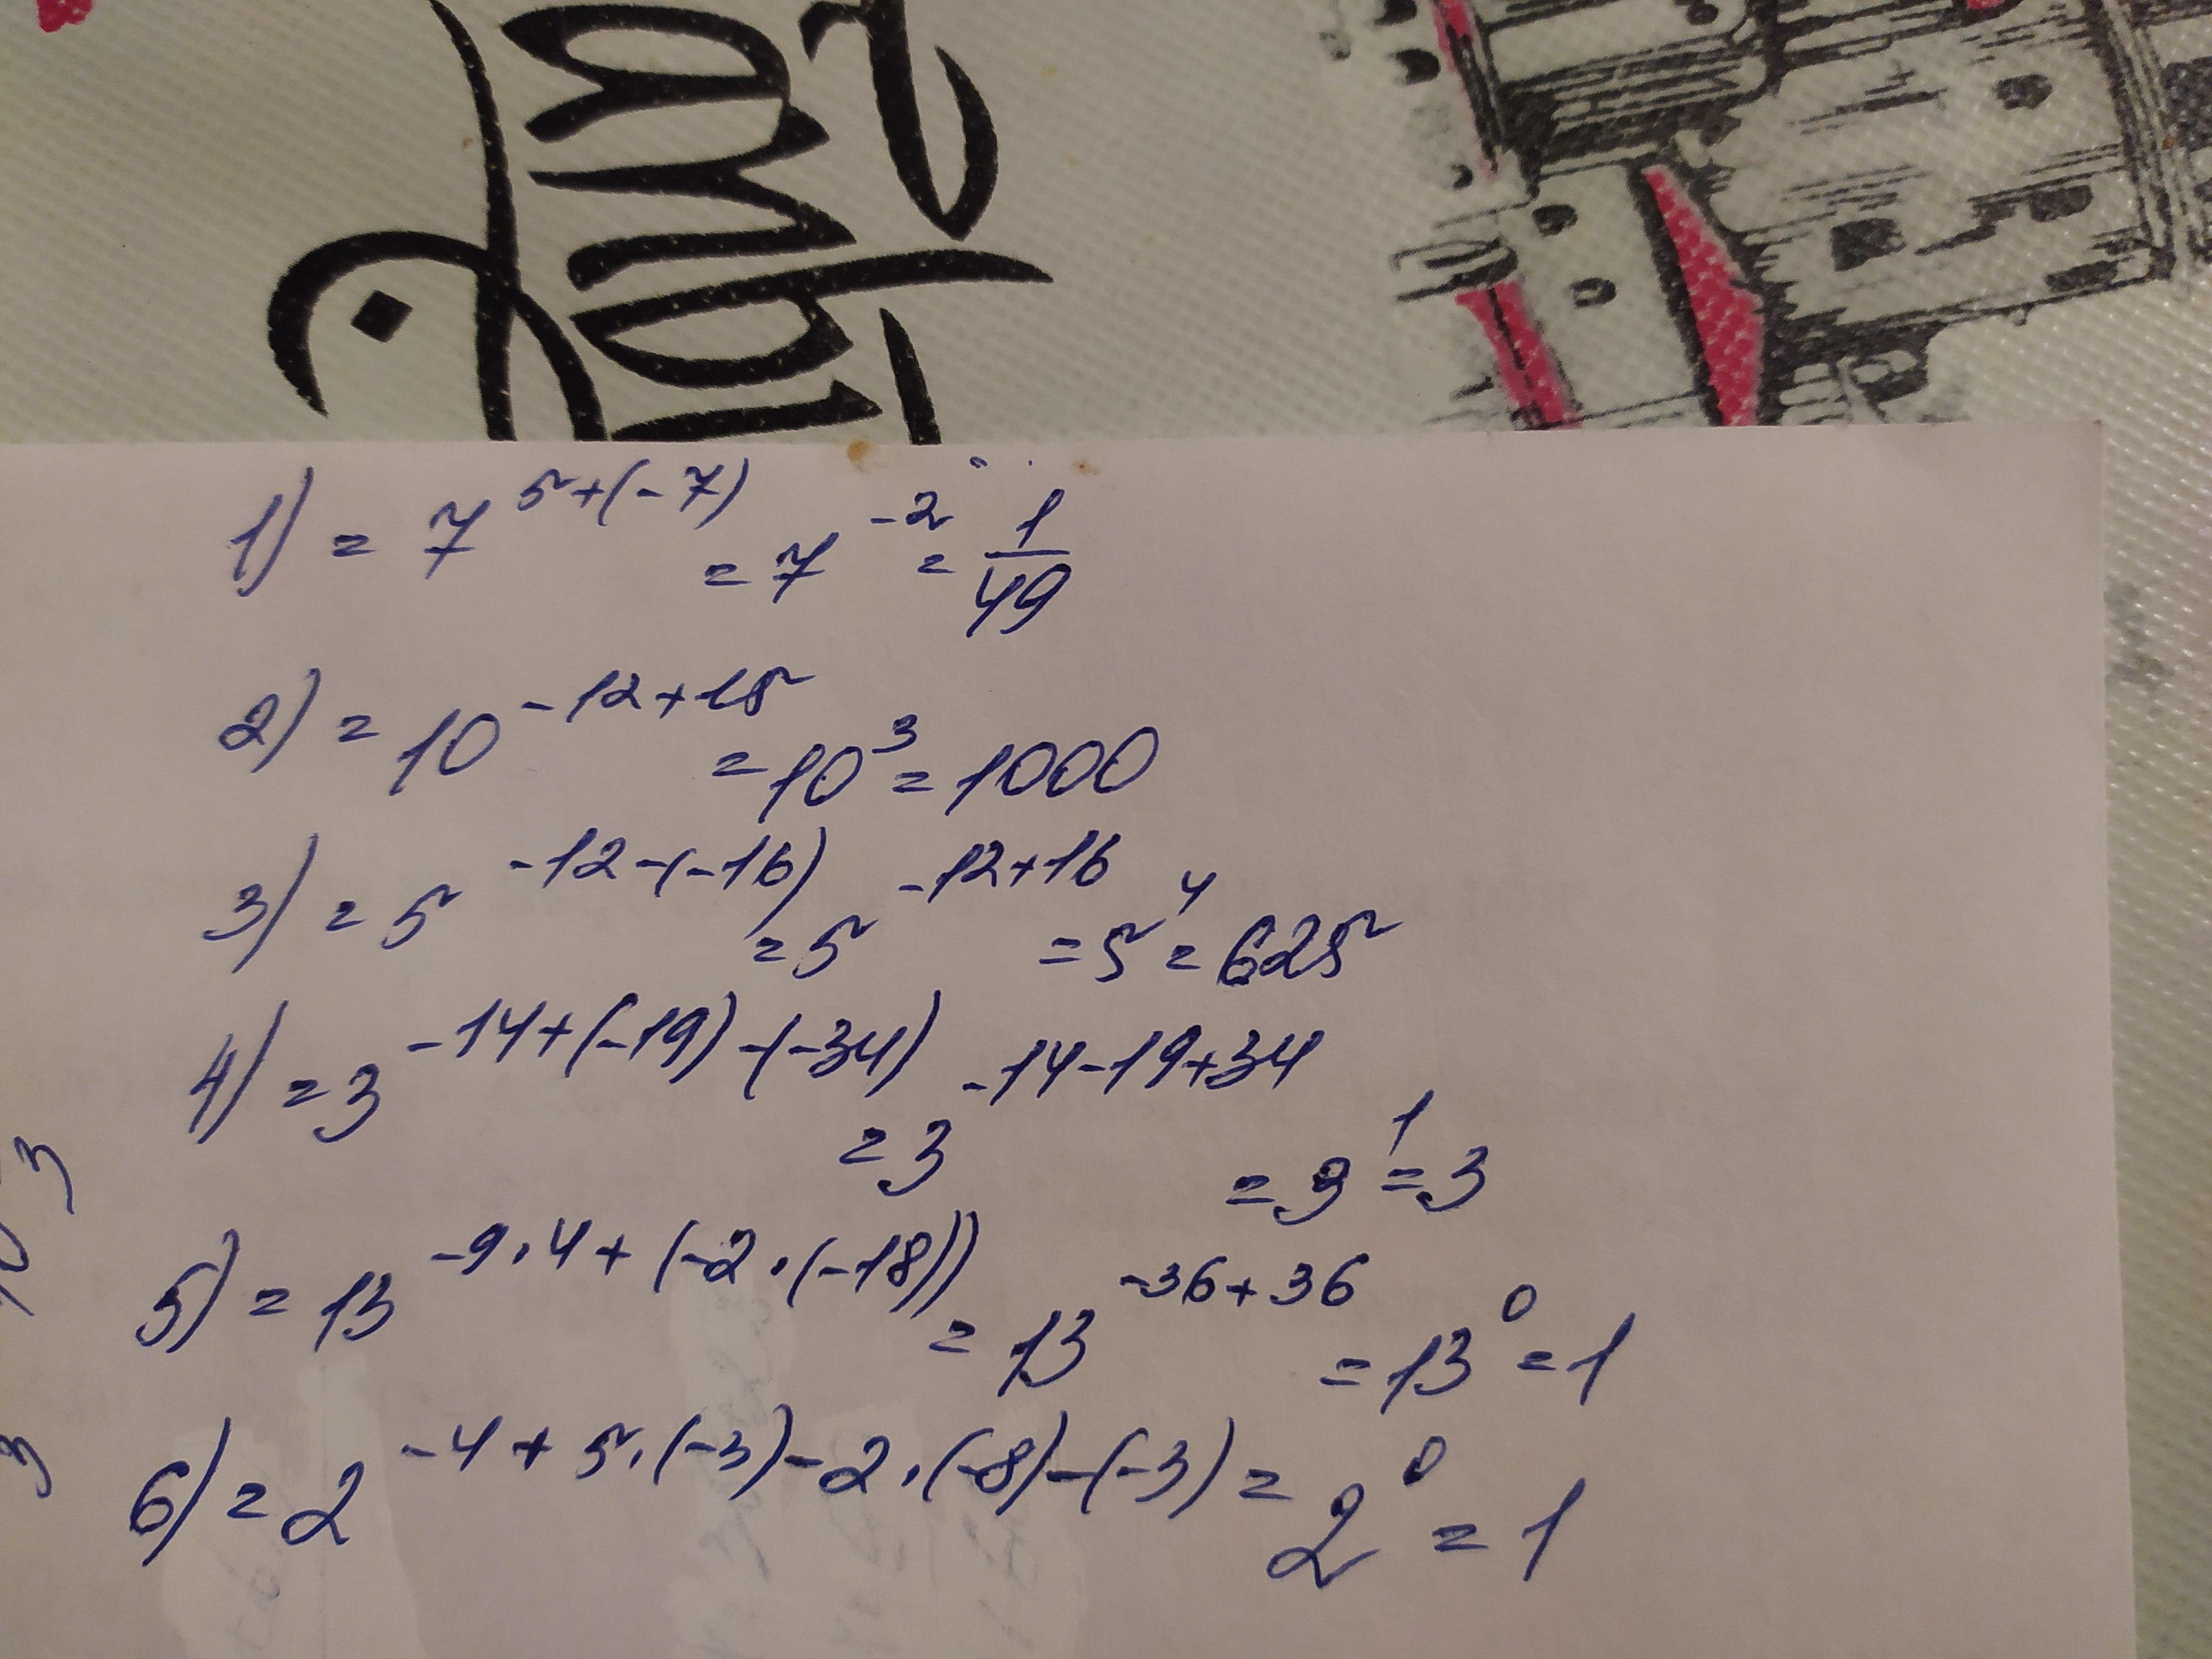 1) = 7^{5+(-7)} = 7^{-2} = \frac{1}{49}
2) = 10^{-12+15} = 10^{3} = 1000
3) = 5^{-12-(-16)} = 5^{-12+16} = 5^{4} = 625
4) = 3^{-14+(-19)-(-34)} = 3^{-14-19+34} = 3^{1} = 3
5) = 13^{-9·4+(-2·(-18))} = 13^{-36+36} = 13^{0} = 1
6) = 2^{-4+5·(-3)-2·(-8)-(-3)} = 2^{0} = 1